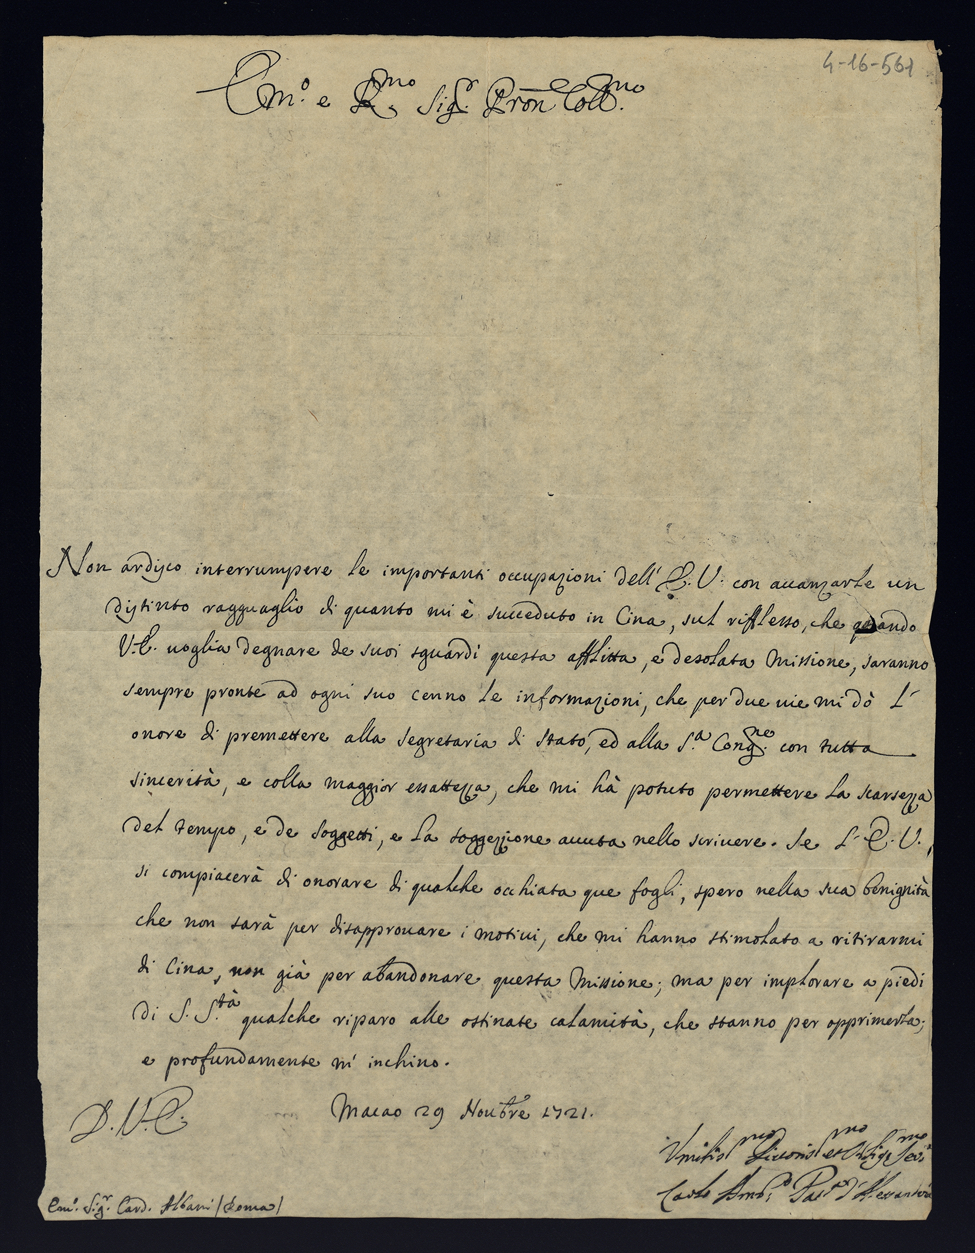 4-16-561
Em.º e R.mo Sig.r Pron Coll.mo
Non ardisco interrumpere le importanti occupazioni dell' E. V. con avanzarle un
distinto ragguaglio di quanto mi è succeduto in Cina, sul riflesso, che quando
V. E. voglia degnare de suoi sguardi questa afflitta, e desolata Missione, saranno
sempre pronte ad ogni suo cenno le informazioni, che per due vie mi dò l'
onore di premettere alla segretaria di stato, ed alla S.a Cong.ne con tutta
sincerità, e colla maggior esattezza, che mi hà potuto permettere la scarsezza
del tempo, e de soggetti, e la soggezzione avuta nello scrivere. Se l' E. V.,
si compiacerà di onorare di qualche occhiata que fogli, spero nella sua benignità
che non sarà per disapprovare i motivi, che mi hanno stimolato a ritirarmi
di Cina, non già per abandonare questa Missione; ma per implorare a piedi
di S. S.tà qualche riparo alle ostinate calamità, che stanno per opprimerla;
e profundamente m' inchino.
D. V. E.
Macao 29 Novbre 1721.
Umiliss.mo Divotis.mo et Oblig.mo Ser.
Carlo Amb.o Pat.ca d' Alessandria
Em.º Sig.r Card. Albani (Roma)